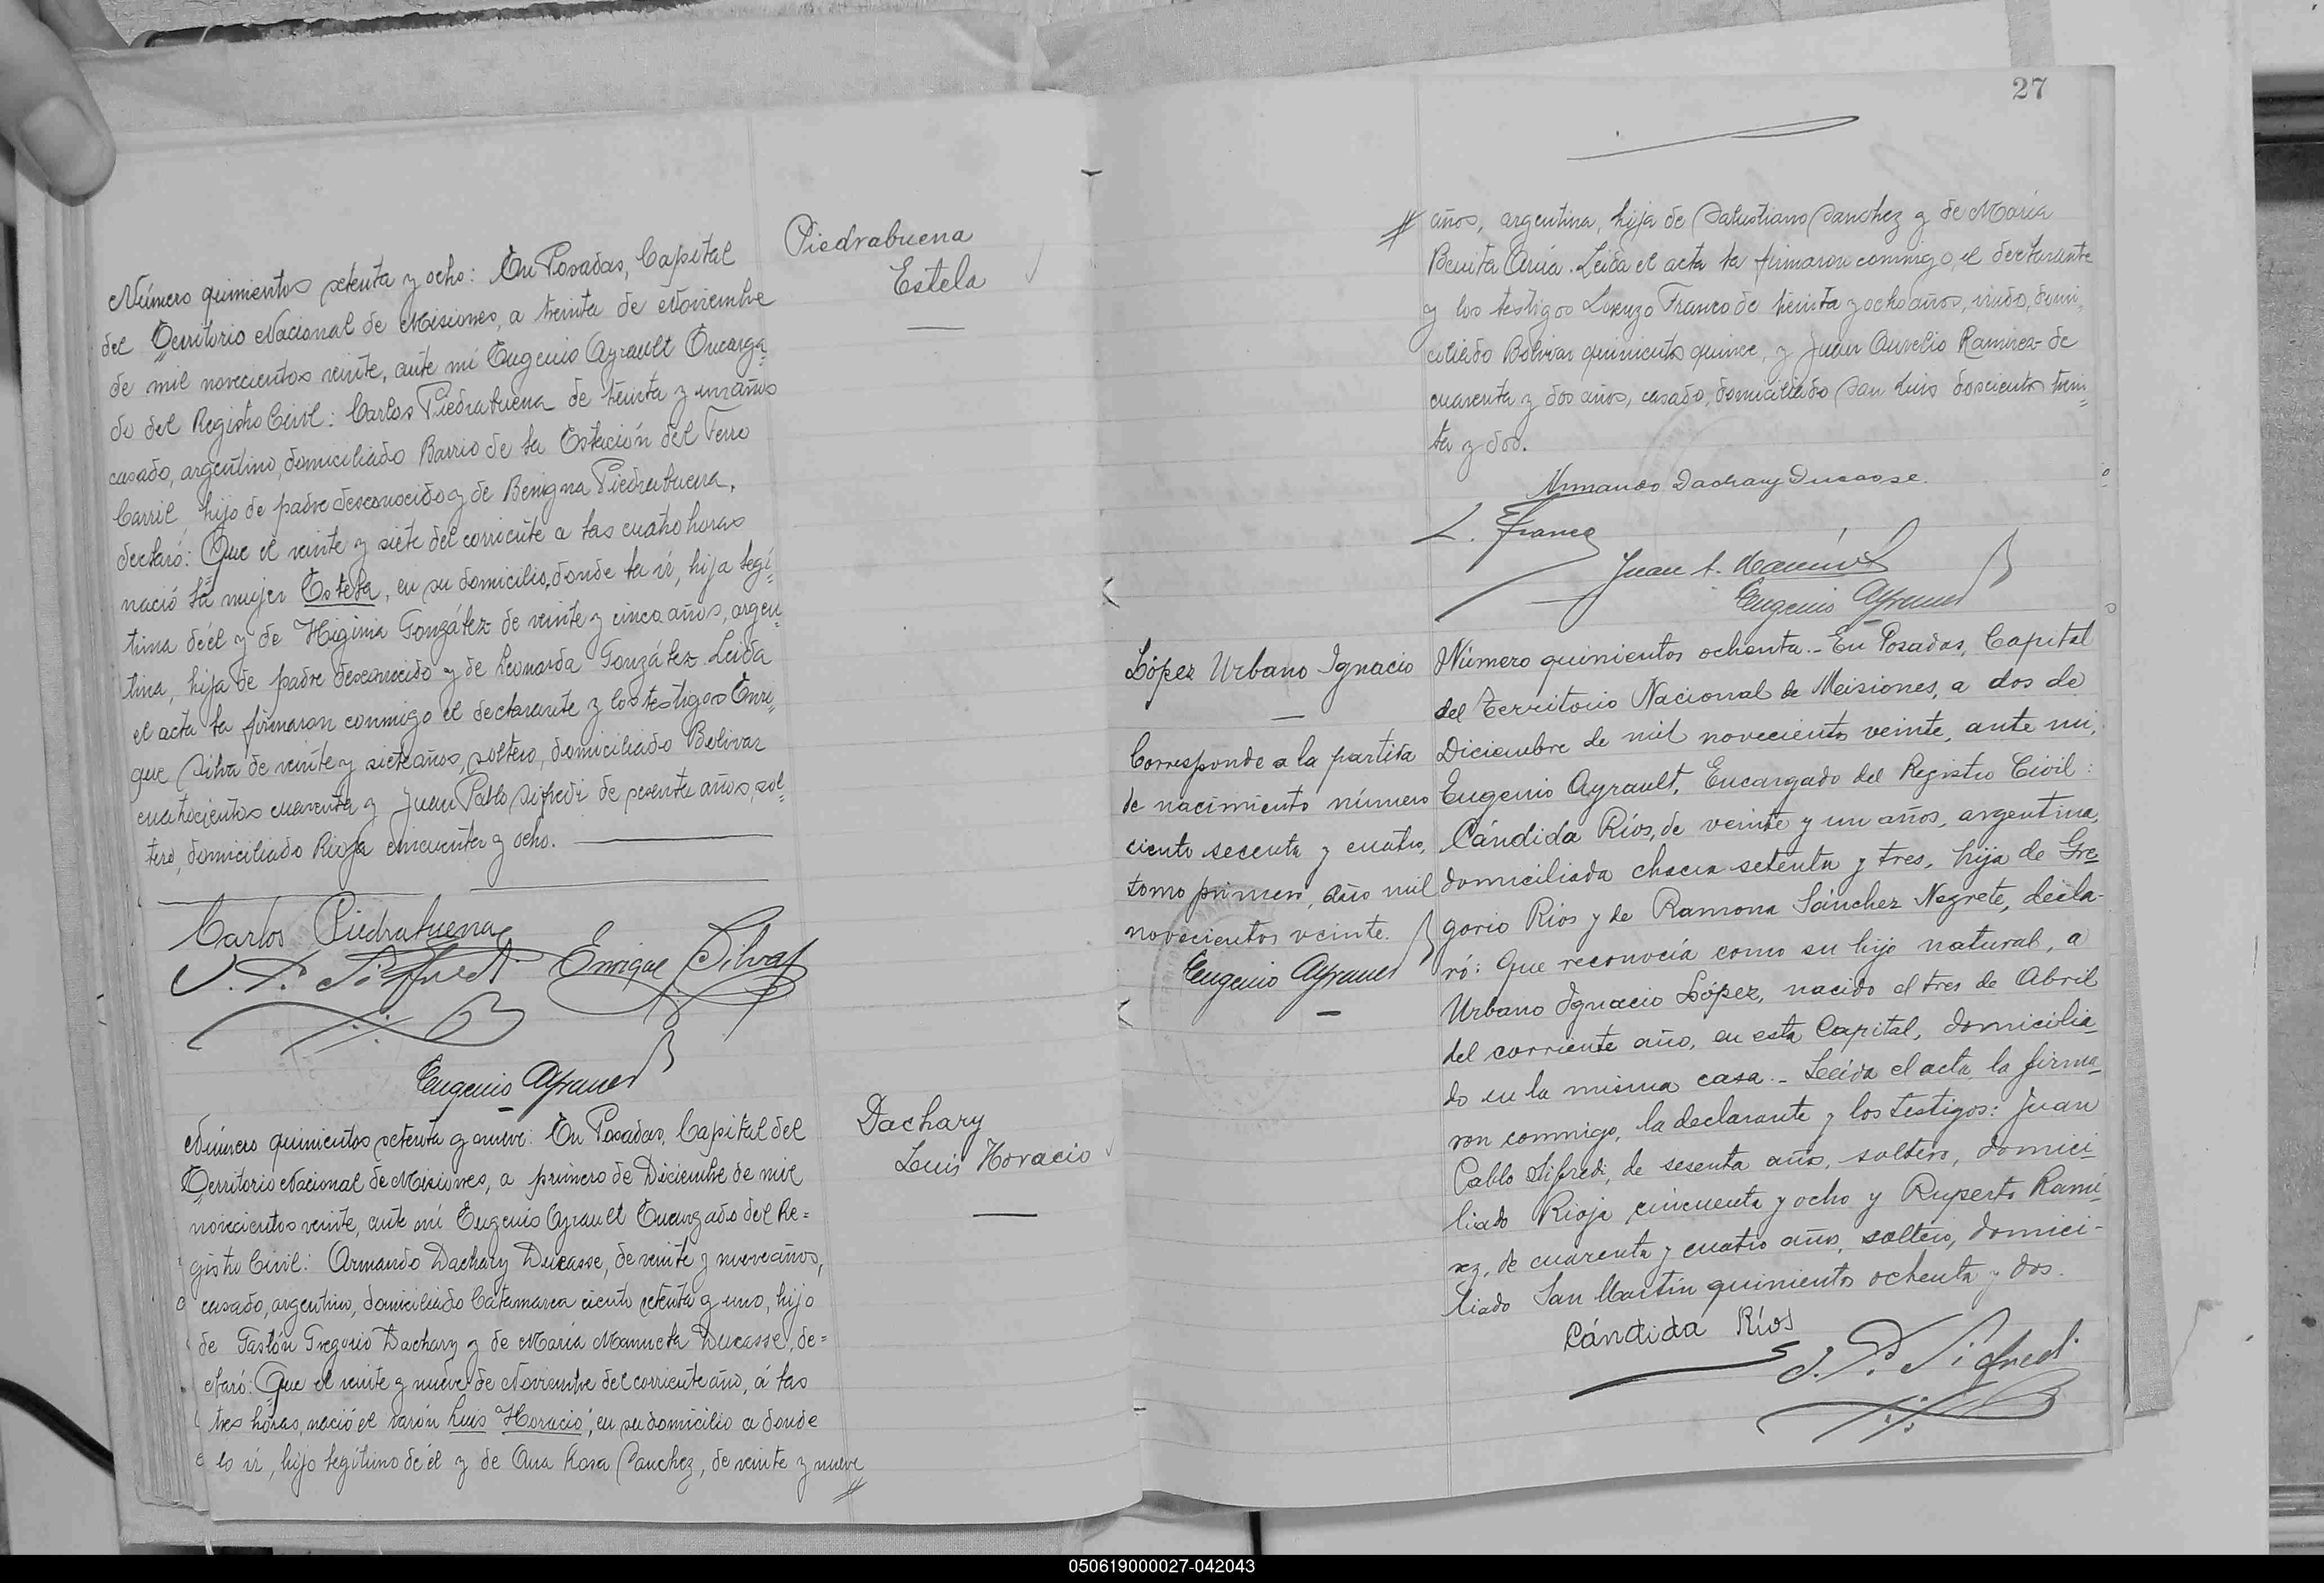 Piedrabuena
Estela
Número quinientos setenta y ocho: En Posadas, Capital
del Territorio Nacional de Misiones, a treinta de Noviembre
de mil novecientos veinte, ante mí Eugenio Ayrault Encarga=
do del Registro Civil: Carlos Piedrabuena de treinta y un años
casado, argentino, domiciliado Barrio de la Estación del Ferro
Carril, hijo de padre desconocido y de Benigna Piedrabuena,
declaró: Que el veinte y siete del corriente a las cuatro horas
nació la mujer Estela, en su domicilio, donde la ví, hija legí=
tima de él y de Higinia González de veinte y cinco años, argen=
tina, hija de padre desconocido y de Leonarda González. Leida
el acta la firmaron conmigo el declarante y los testigos Enri=
que Silva de veinte y siete años, soltero, domiciliado Bolivar
cuatrocientos cuarenta y Juan Pablo Sifredi de sesenta años, sol=
tero, domiciliado Rioja cincuenta y ocho.
Carlos Piedrabuena
J. P. Sifredi Enrique Silva
Eugenio Ayrault
Dachary
Luis Horacio
Número quinientos setenta y nueve: En Posadas, Capital del
Territorio Nacional de Misiones, a primero de Diciembre de mil
novecientos veinte, ante mí Eugenio Ayrault Encargado del Re=
gistro Civil: Armando Dachary Ducasse, de veinte y nueve años,
casado, argentino, domiciliado Catamarca ciento setenta y uno, hijo
de Gastón Gregorio Dachary y de María Manuela Ducasse, de=
claró: Que el veinte y nueve de Noviembre del corriente año, á las
tres horas, nació el varón Luis "Horacio", en su domicilio a donde
lo ví, hijo legítimo de él y de Ana Rosa Sanchez, de veinte y nueve
27
años, argentina, hija de Salustiano Sanchez y de María
Benita. Leida el acta la firmaron conmigo, el declarante
y los testigos Lorenzo Franco de treinta y ocho años, viudo, domi=
ciliado Bolivar quinientos quince, y Juan Aurelio Ramirez de
cuarenta y dos años, casado, domiciliado San Luis doscientos trein=
ta y dos.
Armando Dachary Ducasse.
L. Franco
Juan A. Ramírez
Eugenio Ayrault
López Urbano Ignacio
Corresponde a la partida
de nacimiento número
ciento secenta y cuatro,
tomo primero, año mil
novecientos veinte.
Eugenio Ayrault
Número quinientos ochenta.- En Posadas, Capital
del Territorio Nacional de Meisiones, a dos de
Diciembre de mil novecientos veinte, ante mi,
Eugenio Ayrault, Encargado del Registro Civil:
Cándida Ríos, de veinte y un años, argentina,
domiciliada chacra setenta y tres, hija de Gre-
gorio Rios y de Ramona Sánchez Negrete, decla-
ró: Que reconocía como su hijo natural, a
Urbano Ignacio López, nacido el tres de Abril
del corriente año, en esta Capital, domicilia-
do en la misma casa.- Leida el acta, la firma-
ron conmigo, la declarante y los testigos: Juan
Pablo Sifredi, de sesenta años, soltero, domici-
liado Rioja cincuenta y ocho y Ruperto Rami-
rez, de cuarenta y cuatro años, soltero, domici-
liado San Martin quinientos ochenta y dos.
Cándida Ríos
J. P. Sifredi
050619000027-042043